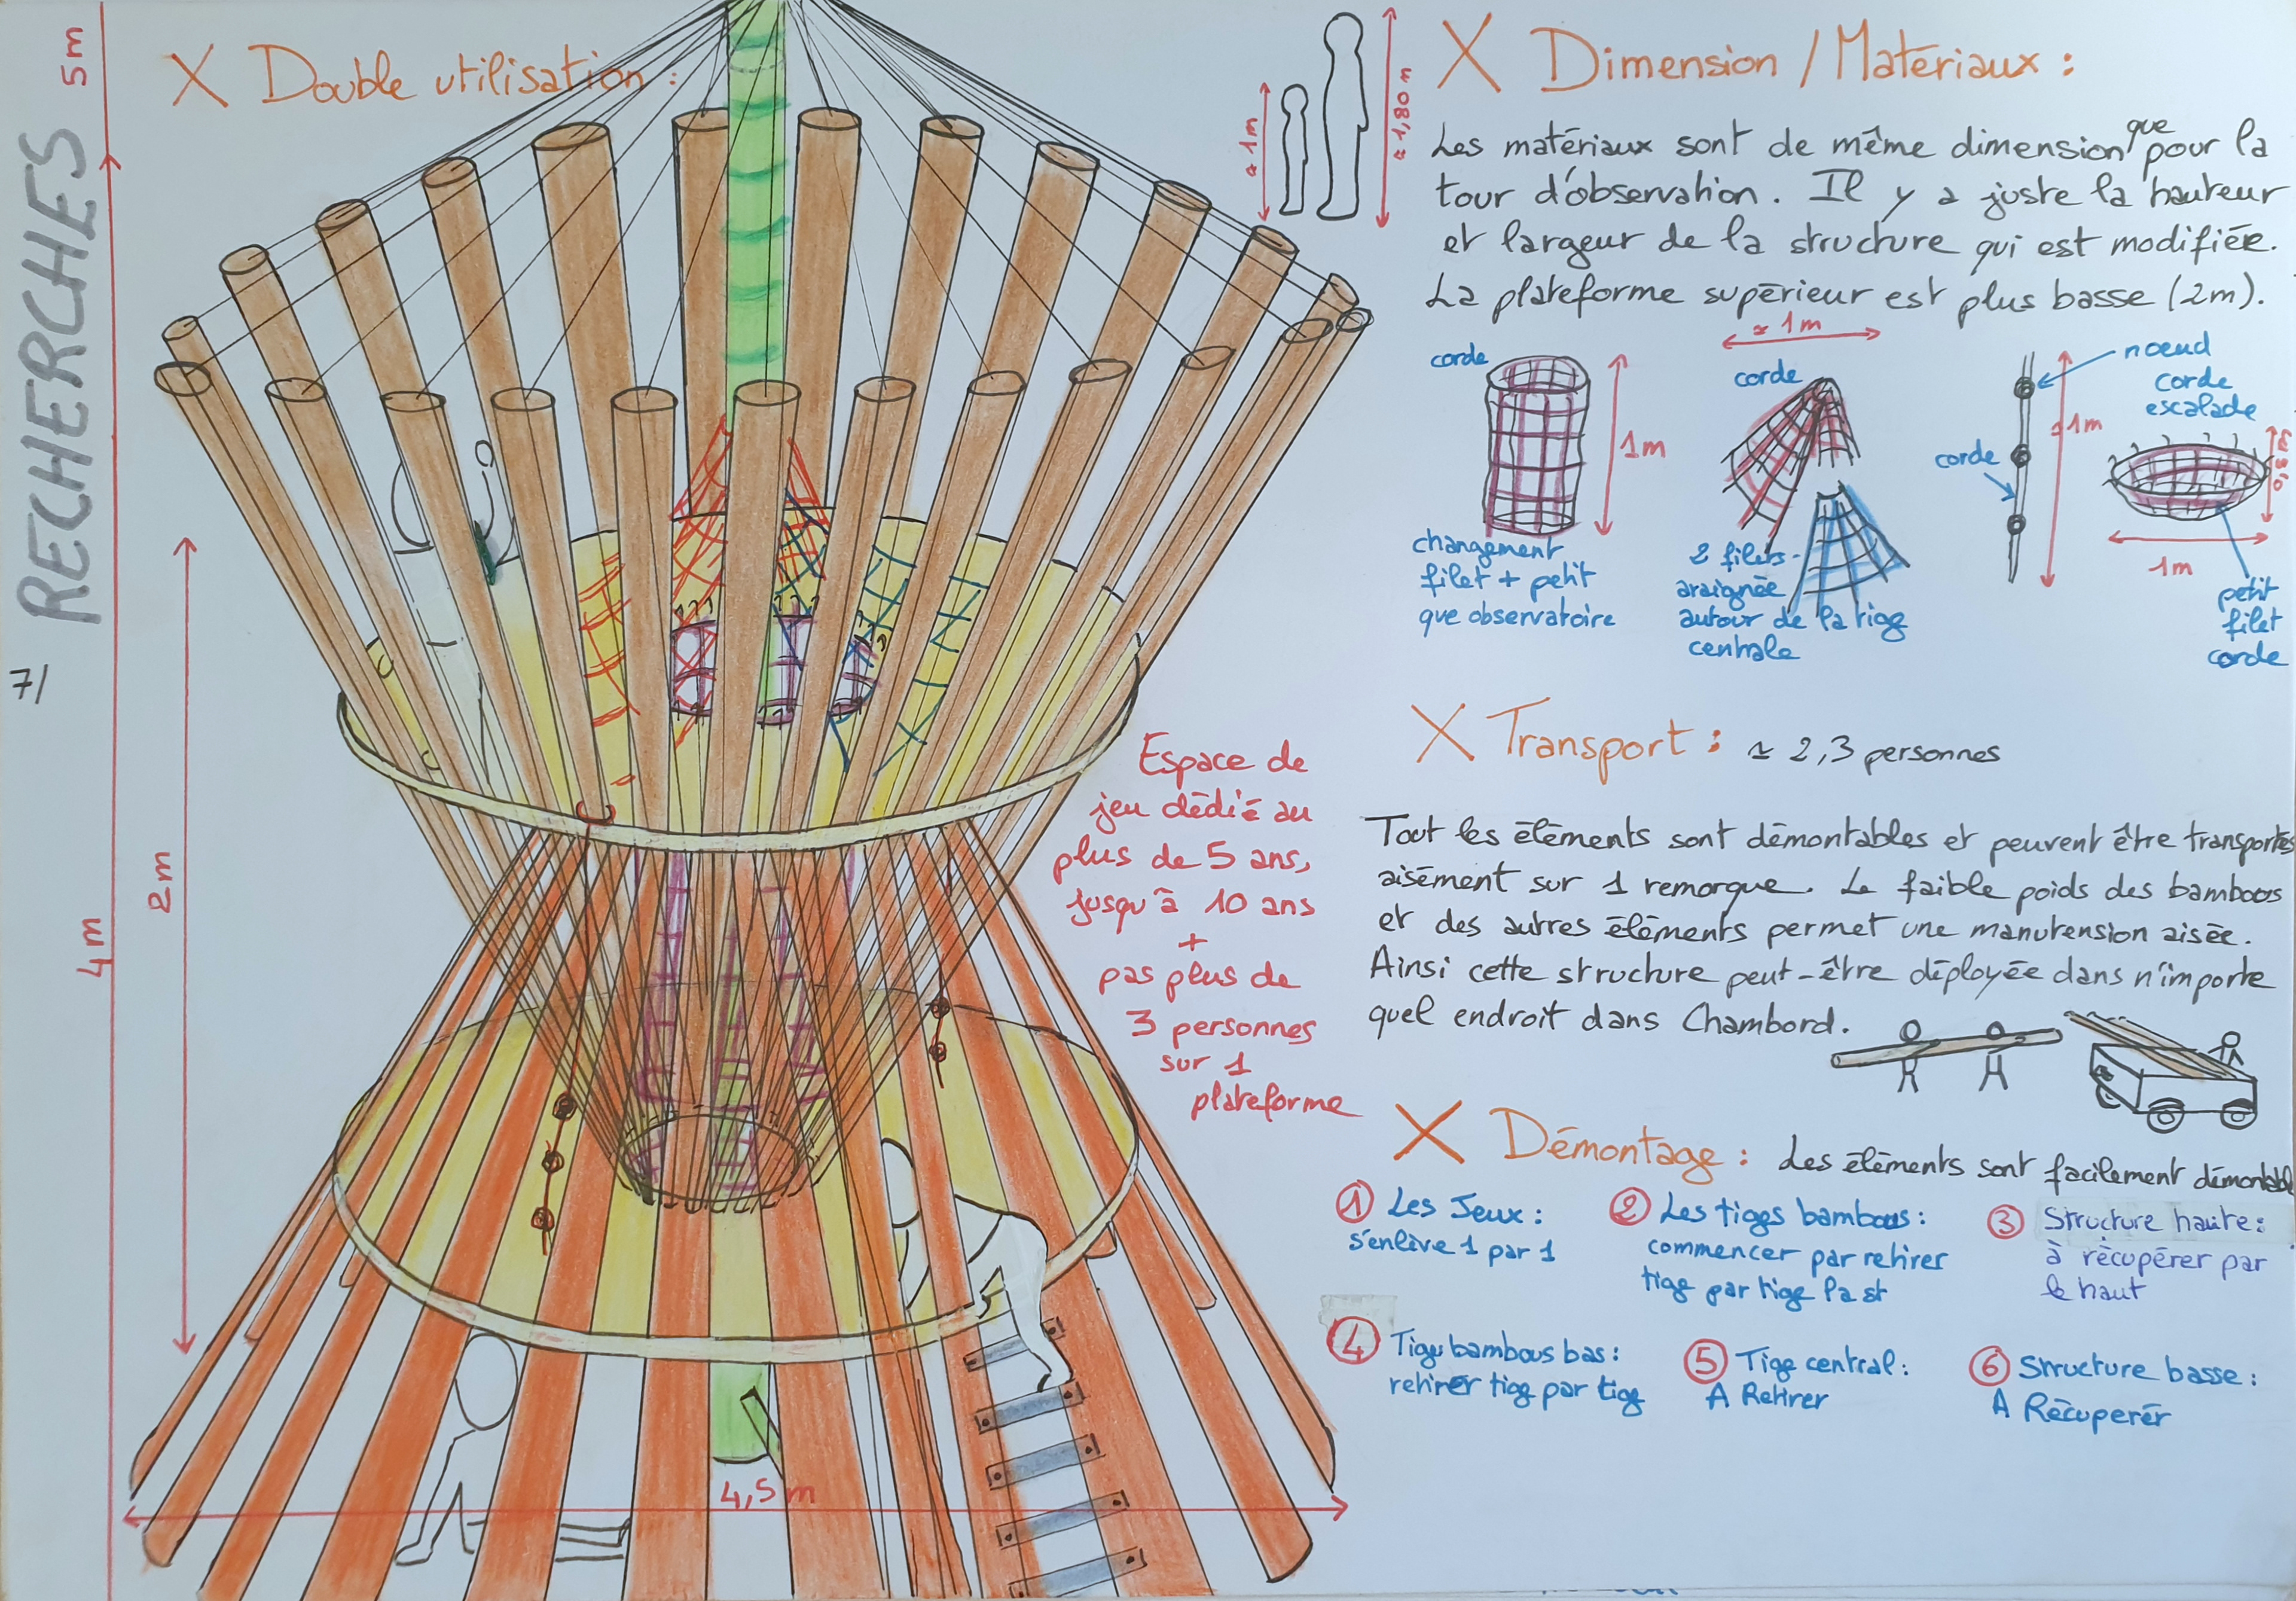 RECHERCHES
7/
5m
4m
2m
X Double utilisation :
4,5 m
Espace de
jeu dédié au
plus de 5 ans,
jusqu'à 10 ans
+
pas plus de
3 personnes
sur 1
plateforme
≈ 1m
≈ 1,80 m
X Dimension / Matériaux :
Les matériaux sont de même dimension que pour la
tour d'observation. Il y a juste la hauteur
et largeur de la structure qui est modifiée.
La plateforme supérieur est plus basse (2m).
corde
1m
changement
filet + petit
que observatoire
≈ 1m
corde
2 filets
araignée
autour de la tige
centrale
noeud
corde
escalade
corde
1m
1m
petit
filet
corde
X Transport : ≈ 2,3 personnes
Tout les éléments sont démontables et peuvent être transportés
aisément sur 1 remorque. Le faible poids des bamboos
et des autres éléments permet une manutension aisée.
Ainsi cette structure peut-être déployée dans n'importe
quel endroit dans Chambord.
X Démontage : Les éléments sont facilement démontable
① Les Jeux :
s'enlève 1 par 1
② Les tiges bambous :
commencer par retirer
tige par tige la st
③ Structure haute :
à récupérer par
le haut
④ Tige bambous bas :
retirer tige par tige
⑤ Tige central :
A Retirer
⑥ Structure basse :
A Récuperér